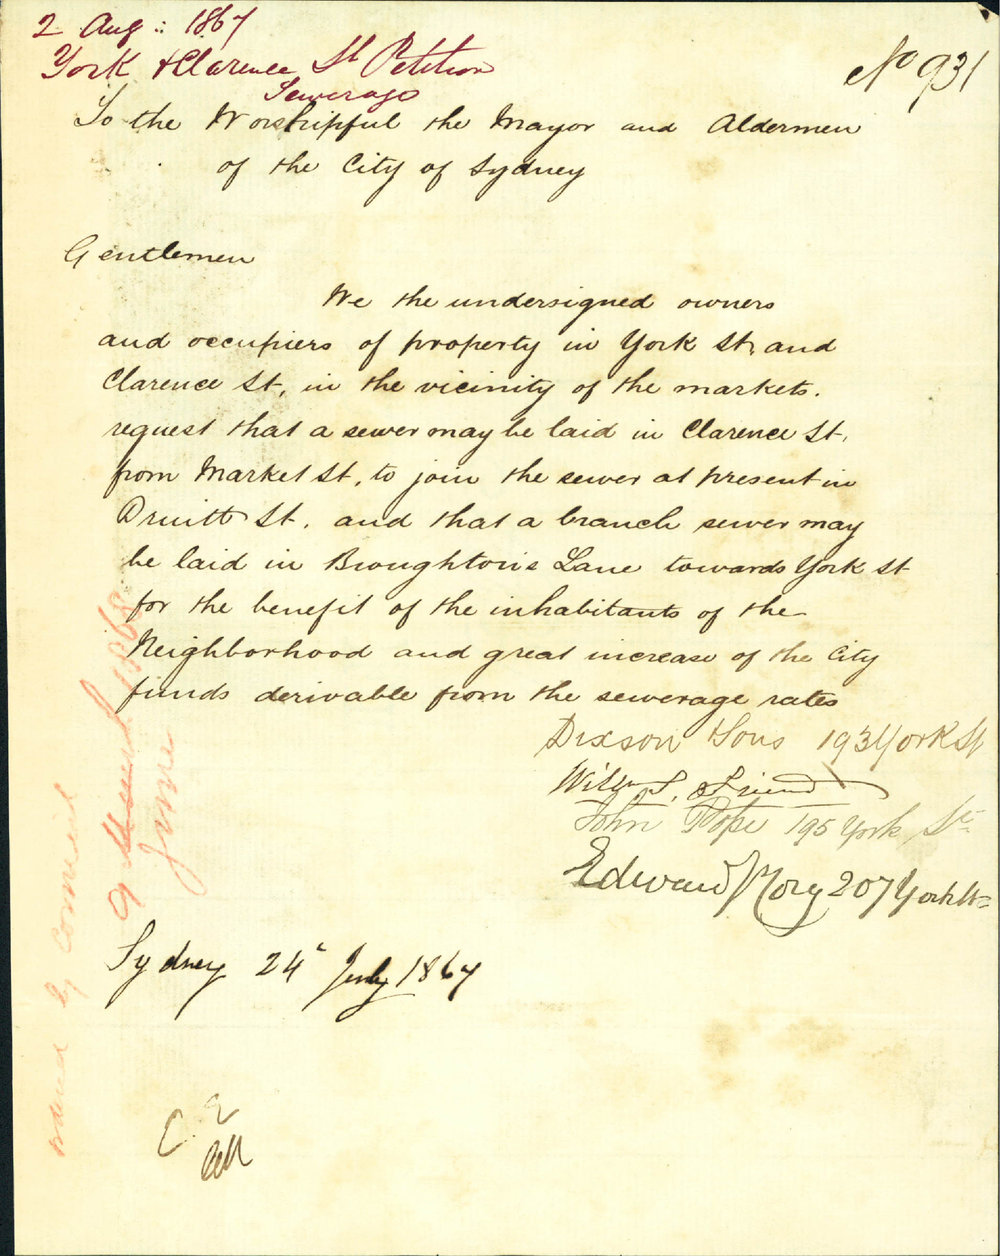 2 Aug:: 1867
York & Clarence St Petition
Sewerage
No 931
To the Worshipful the Mayor and Aldermen
of the City of Sydney
Gentlemen
We the undersigned owners
and occupiers of property in York St, and
Clarence St, in the vicinity of the markets.
request that a sewer may be laid in Clarence St,
from Market St, to join the sewer at present in
Druitt St. and that a branch sewer may
be laid in Broughton's Lane towards York St
for the benefit of the inhabitants of the
Neighborhood and great increase of the City
funds derivable from the sewerage rates
Dixson & Sons 193 York St
Willm S. Friend
John Pope 195 York St
Edward 207 York St
Sydney 24 July 1867
ordered by Council
9 March 1868
June